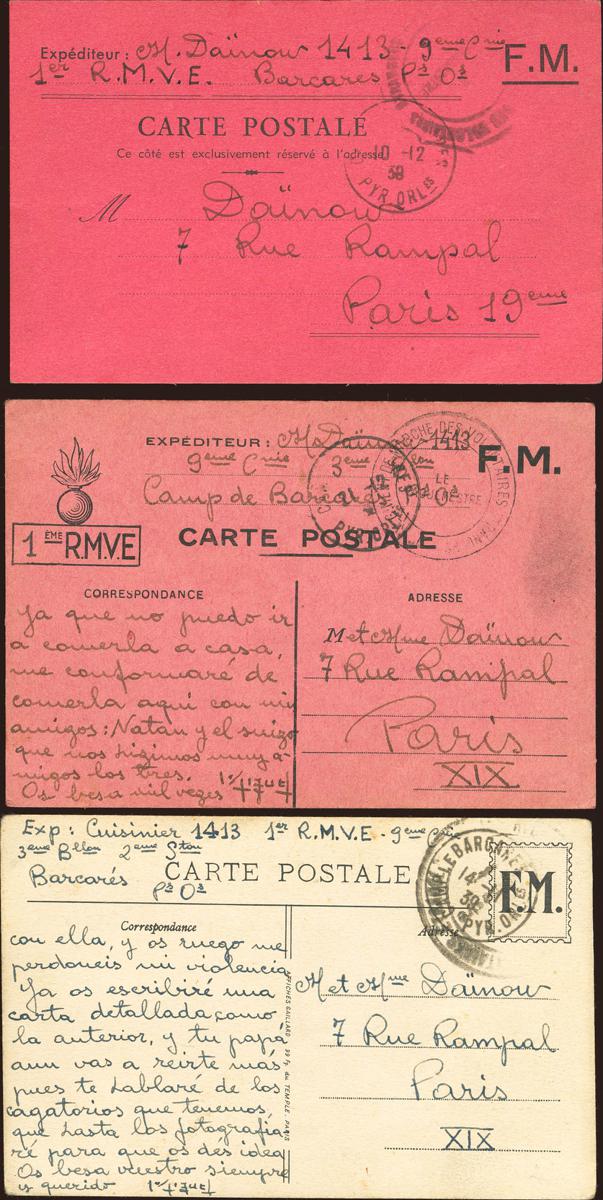 Expéditeur : H. Daïnow 1413 - 9eme Cnie
F.M.
1er R.M.V.E. Barcares Ps Os
CARTE POSTALE
Ce côté est exclusivement réservé à l'adresse
10 -12
39
PYR. ORLES
M Daïnow
7 Rue Rampal
Paris 19eme
EXPÉDITEUR : Daïnow 1413
F.M.
9eme Cnie 3eme
Camp de Barcarès
1ÈME R.M.V.E
CARTE POSTALE
CORRESPONDANCE
Ya que no puedo ir
a comerla a casa,
me conformaré de
comerla aquí con mis
amigos: Natan y el suizo
que nos hizimos muy a-
migos los tres.
Os besa mil veces
ADRESSE
M et Mme Daïnow
7 Rue Rampal
Paris
XIX
Exp : Cuisinier 1413 1er R.M.V.E - 9eme Cnie
3eme Bllon 2eme Ston
Barcarés Ps Os
CARTE POSTALE
F.M.
LE BARCARES
14
39
PYR. ORLES
Correspondance
con ella, y os ruego me
perdoneis mi violencia
Ya os escribiré una
carta detallada como
la anterior, y tu papá
aun vas a reirte más
pues te hablaré de los
cagatorios que tenemos,
que hasta los fotografia-
ré para que os déis idea
Os besa vuestro siempre
y querido
AFFICHES GAILLARD, FG DU TEMPLE, PARIS
Adresse
M et Mme Daïnow
7 Rue Rampal
Paris
XIX